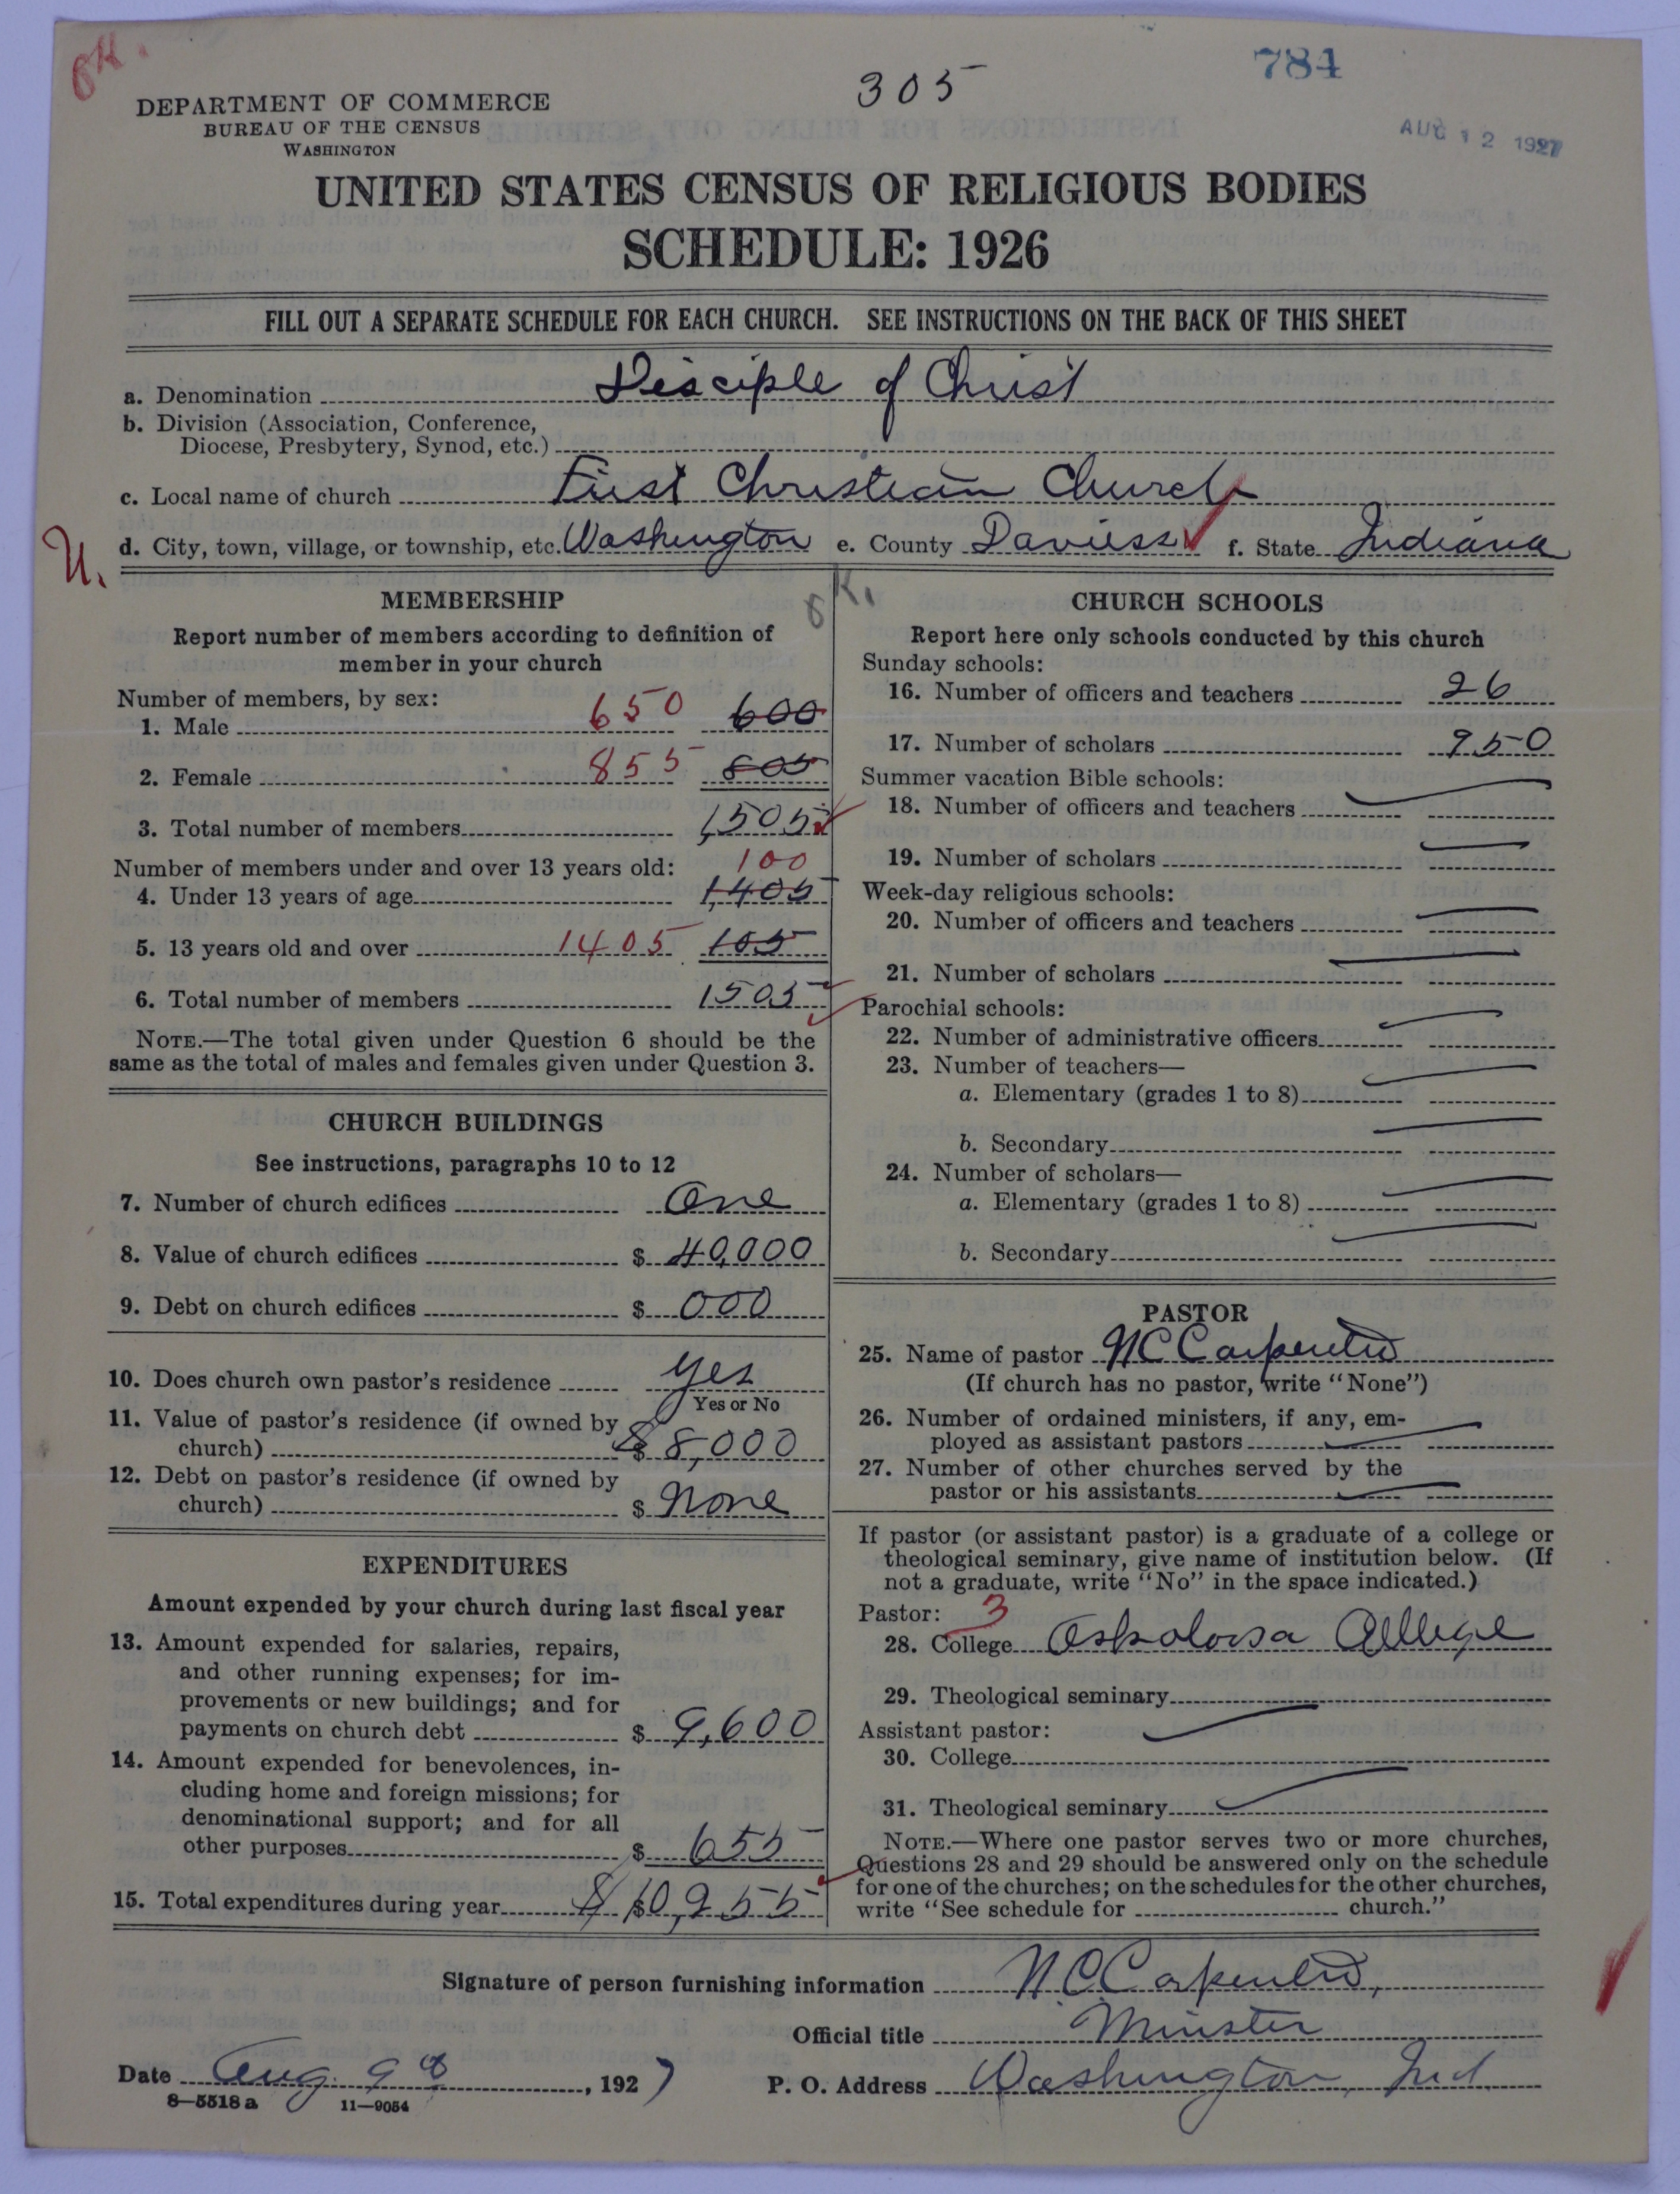 OK.
305
784
DEPARTMENT OF COMMERCE
BUREAU OF THE CENSUS
WASHINGTON
AUG 12 1927
UNITED STATES CENSUS OF RELIGIOUS BODIES
SCHEDULE: 1926
FILL OUT A SEPARATE SCHEDULE FOR EACH CHURCH. SEE INSTRUCTIONS ON THE BACK OF THIS SHEET
a. Denomination Disciple of Christ
b. Division (Association, Conference,
Diocese, Presbytery, Synod, etc.)
c. Local name of church First Christian Church
U. d. City, town, village, or township, etc. Washington e. County Daviess f. State Indiana
OK.
MEMBERSHIP
Report number of members according to definition of
member in your church
Number of members, by sex:
1. Male 650 600
2. Female 855 805
3. Total number of members 1,505
Number of members under and over 13 years old: 100
4. Under 13 years of age 1,405
5. 13 years old and over 1405 105
6. Total number of members 1505
NOTE.—The total given under Question 6 should be the
same as the total of males and females given under Question 3.
CHURCH BUILDINGS
See instructions, paragraphs 10 to 12
7. Number of church edifices One
8. Value of church edifices $ 40,000
9. Debt on church edifices $ 000
10. Does church own pastor's residence yes
Yes or No
11. Value of pastor's residence (if owned by
church) $ 8,000
12. Debt on pastor's residence (if owned by
church) $ None
EXPENDITURES
Amount expended by your church during last fiscal year
13. Amount expended for salaries, repairs,
and other running expenses; for im-
provements or new buildings; and for
payments on church debt $ 9,600
14. Amount expended for benevolences, in-
cluding home and foreign missions; for
denominational support; and for all
other purposes $ 655
15. Total expenditures during year $ 10,255
CHURCH SCHOOLS
Report here only schools conducted by this church
Sunday schools:
16. Number of officers and teachers 26
17. Number of scholars 950
Summer vacation Bible schools:
18. Number of officers and teachers
19. Number of scholars
Week-day religious schools:
20. Number of officers and teachers
21. Number of scholars
Parochial schools:
22. Number of administrative officers
23. Number of teachers—
a. Elementary (grades 1 to 8)
b. Secondary
24. Number of scholars—
a. Elementary (grades 1 to 8)
b. Secondary
PASTOR
25. Name of pastor N C Carpenter
(If church has no pastor, write "None")
26. Number of ordained ministers, if any, em-
ployed as assistant pastors
27. Number of other churches served by the
pastor or his assistants
If pastor (or assistant pastor) is a graduate of a college or
theological seminary, give name of institution below. (If
not a graduate, write "No" in the space indicated.)
Pastor: 3
28. College Oskaloosa College
29. Theological seminary
Assistant pastor:
30. College
31. Theological seminary
NOTE.—Where one pastor serves two or more churches,
Questions 28 and 29 should be answered only on the schedule
for one of the churches; on the schedules for the other churches,
write "See schedule for church."
Signature of person furnishing information N.C. Carpenter,
Official title Minister
Date Aug. 9th, 1927 P. O. Address Washington, Ind.
8—5518 a 11—9054